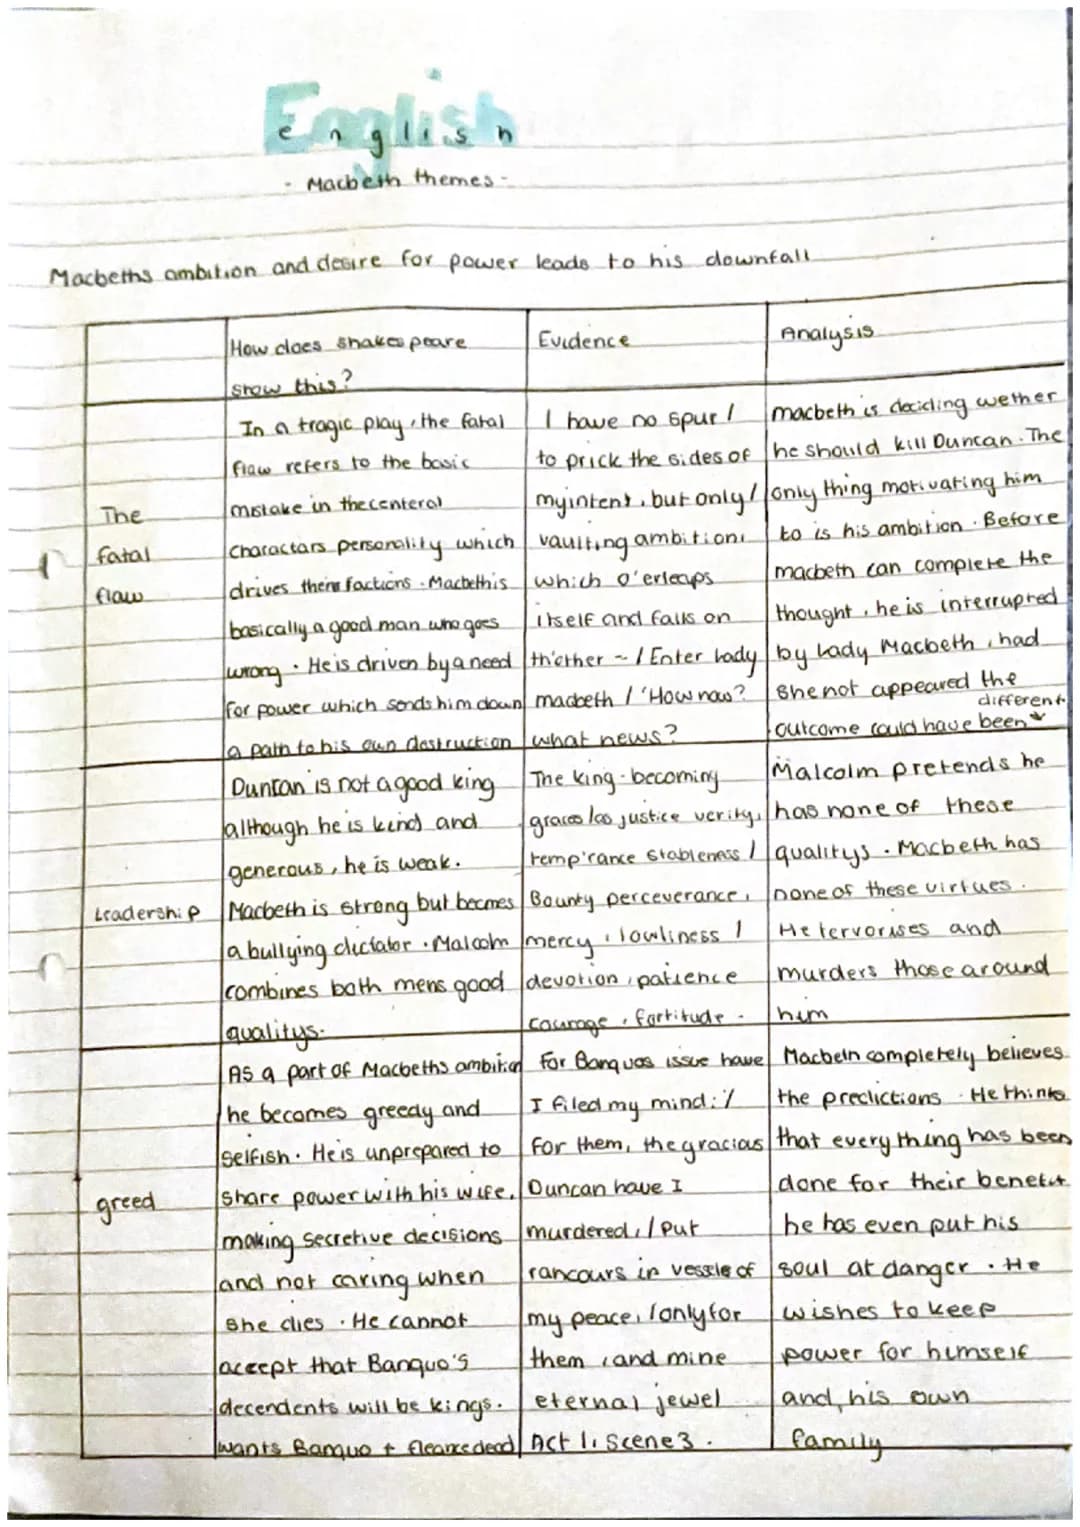 English
english
- Macbeth themes -
Macbeths ambition and desire for power leads to his downfall
How does shakespeare
show this?
Evidence
Analysis
The
fatal
flaw
In a tragic play, the fatal
flaw refers to the basic
mistake in the centeral
charactars personality which
drives there factions. Macbeth is
basically a good man who goes
wrong. He is driven by a need
for power which sends him down
a path to his own destruction
I have no spur /
to prick the sides of
my intent, but only /
vaulting ambition,
which o'erleaps
itself and falls on
th'other ~ / Enter lady
macbeth / 'How now?
what news?
macbeth is deciding wether
he should kill Duncan. The
only thing motivating him
to is his ambition. Before
macbeth can complete the
thought, he is interrupted
by Lady Macbeth, had
she not appeared the
different
outcome could have been
Leadership
Duncan is not a good king
although he is kind and
generous, he is weak.
Macbeth is strong but becmes
a bullying dictator. Malcolm
combines both mens good
qualitys.
The king-becoming
graces /as justice verity,
temp'rance stableness /
Bounty perceverance,
mercy, lowliness /
devotion, patience
courage, fortitude.
Malcolm pretends he
has none of these
qualitys. Macbeth has
none of these virtues.
He tervorises and
murders those around
him
greed
As a part of Macbeths ambition
he becomes greedy and
selfish. He is unprepared to
share power with his wife,
making secretive decisions
and not caring when
she dies. He cannot
accept that Banquo's
decendents will be kings.
wants Banquo + fleance dead
For Banquos issue have
I filed my mind: /
For them, the gracias
Duncan have I
murdered, / Put
rancours in vessle of
my peace, / only for
them, and mine
eternal jewel
Act 1, Scene 3.
Macbeth completely believes
the predictions. He thinks
that everything has been
done for their benefit
he has even put his
soul at danger. He
wishes to keep
power for himself
and, his own
family